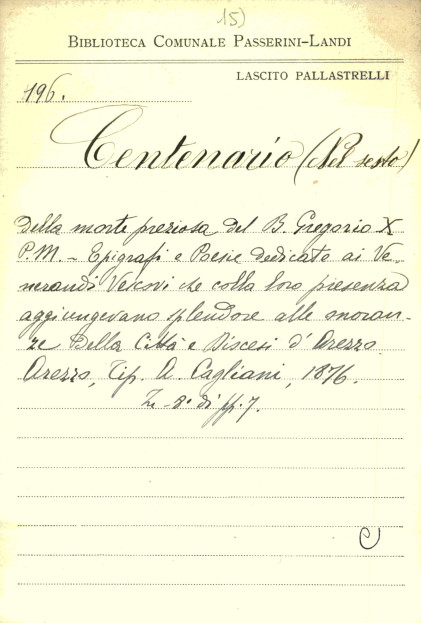 15)
BIBLIOTECA COMUNALE PASSERINI-LANDI
LASCITO PALLASTRELLI
196.
Centenario (Nel sesto)
della morte preziosa del B. Gregorio X
P.M. - Epigrafi e Poesie dedicate ai Ve-
nerandi Vescovi che colla loro presenza
aggiungevano splendore alle onoran-
ze della Città e Diocesi d'Arezzo.
Arezzo, Tip. A. Cagliani, 1876.
In-8° di pp. 7.
C